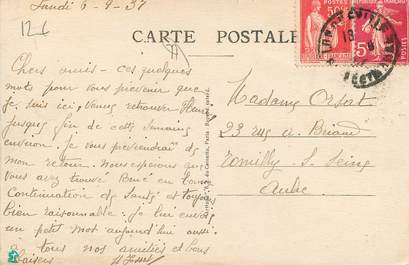 Lundi 6-9-37
126
CARTE POSTALE
Chers amis - ces quelques
mots pour vous prévenir que
je suis ici, venu retrouver Henri
jusqu'à fin de cette semaine
environ. je vous préviendrai de
mon retour. Nous espérons que
vous avez trouvé René en bonne
Continuation de Santé et toujours
bien raisonnable: je lui envoie
un petit mot aujourd'hui aussi
à tous nos amitiés et bons
baisers
Madame Orsat
23 rue A. Briand
Romilly S. Seine
Aube
50c